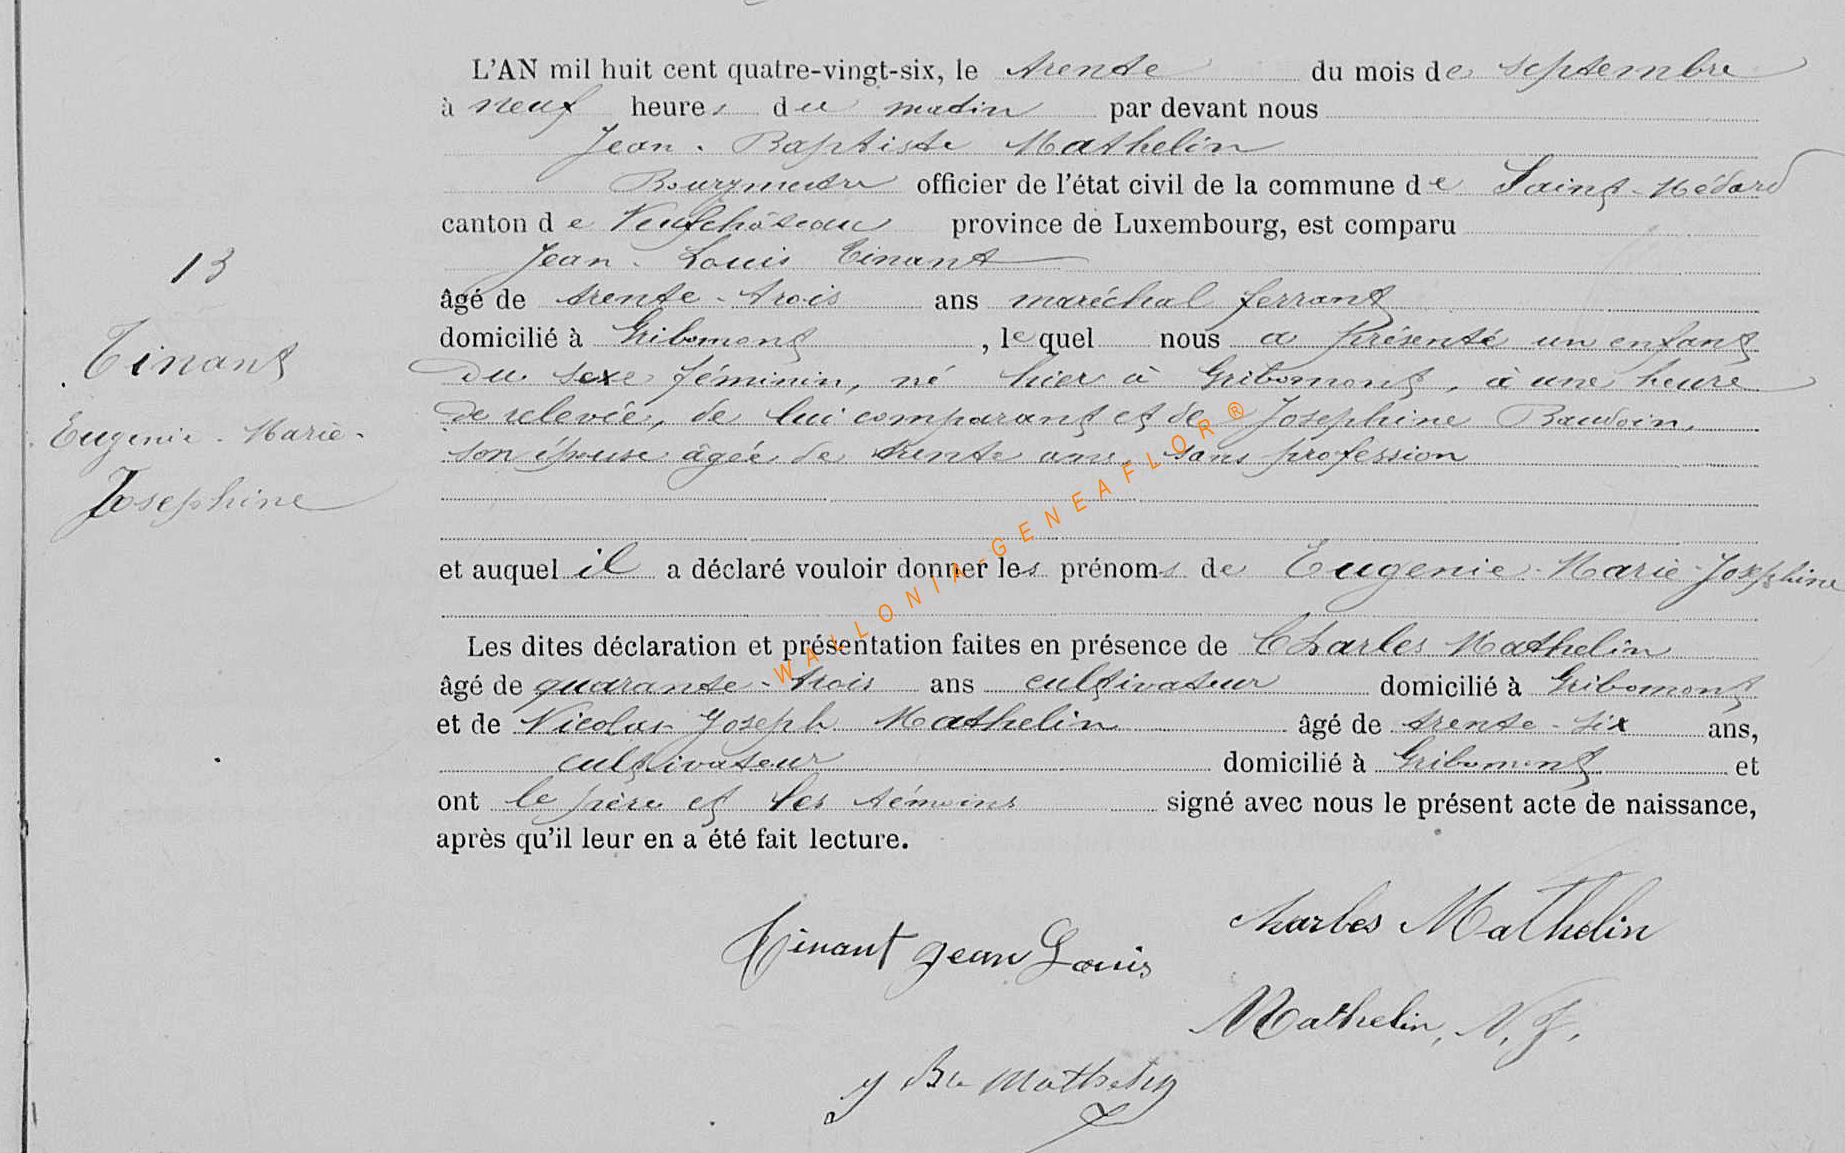 L'AN mil huit cent quatre-vingt-six, le trente du mois de septembre
à neuf heures du matin par devant nous
Jean-Baptiste Mathelin
Bourgmestre officier de l'état civil de la commune de Saint-Médard
canton de Neufchâteau province de Luxembourg, est comparu
Jean-Louis Tinant
âgé de trente-trois ans maréchal ferrant
domicilié à Gribomont, lequel nous a présenté un enfant
du sexe féminin, né hier à Gribomont, à une heure
de relevée, de lui comparant et de Josephine Baudoin,
son épouse âgée de trente ans, sans profession
et auquel il a déclaré vouloir donner les prénoms de Eugenie-Marie-Josephine
Les dites déclaration et présentation faites en présence de Charles Mathelin
âgé de quarante-trois ans cultivateur domicilié à Gribomont
et de Nicolas Joseph Mathelin âgé de trente-six ans,
cultivateur domicilié à Gribomont et
ont le père et les témoins signé avec nous le présent acte de naissance,
après qu'il leur en a été fait lecture.
13
Tinant
Eugenie-Marie-
Josephine
Tinant Jean Louis
Charles Mathelin
Mathelin, N. J.
J Bte Mathelin
WALLONIA-GENEAFLOR®